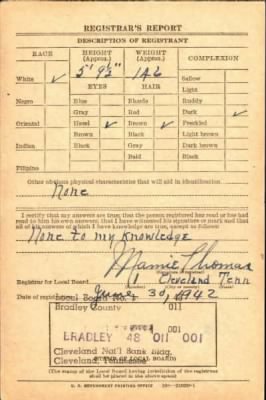 REGISTRAR'S REPORT
DESCRIPTION OF REGISTRANT
RACE HEIGHT (Approx.) WEIGHT (Approx.) COMPLEXION
White ✓ 5' 9½" 146 Sallow
EYES HAIR Light
Negro Blue Blonde Ruddy
Gray Red Dark ✓
Oriental Hazel ✓ Brown ✓ Freckled
Brown Black Light brown
Indian Black Gray Dark brown
Bald Black
Filipino
Other obvious physical characteristics that will aid in identification
None
I certify that my answers are true; that the person registered has read or has had
read to him his own answers; that I have witnessed his signature or mark and that
all of his answers of which I have knowledge are true, except as follows:
None to my Knowledge
Mamie Thomas
Registrar for Local Board Cleveland Tenn
(City or county)
Date of registration June 30, 1942
Local Board No. 1
Bradley County 011
001
BRADLEY 48 011 001
Cleveland Nat'l Bank Bldg.
Cleveland, Tennessee
(STAMP OF LOCAL BOARD)
(The stamp of the Local Board having jurisdiction of the registrant
shall be placed in the above space)
U. S. GOVERNMENT PRINTING OFFICE